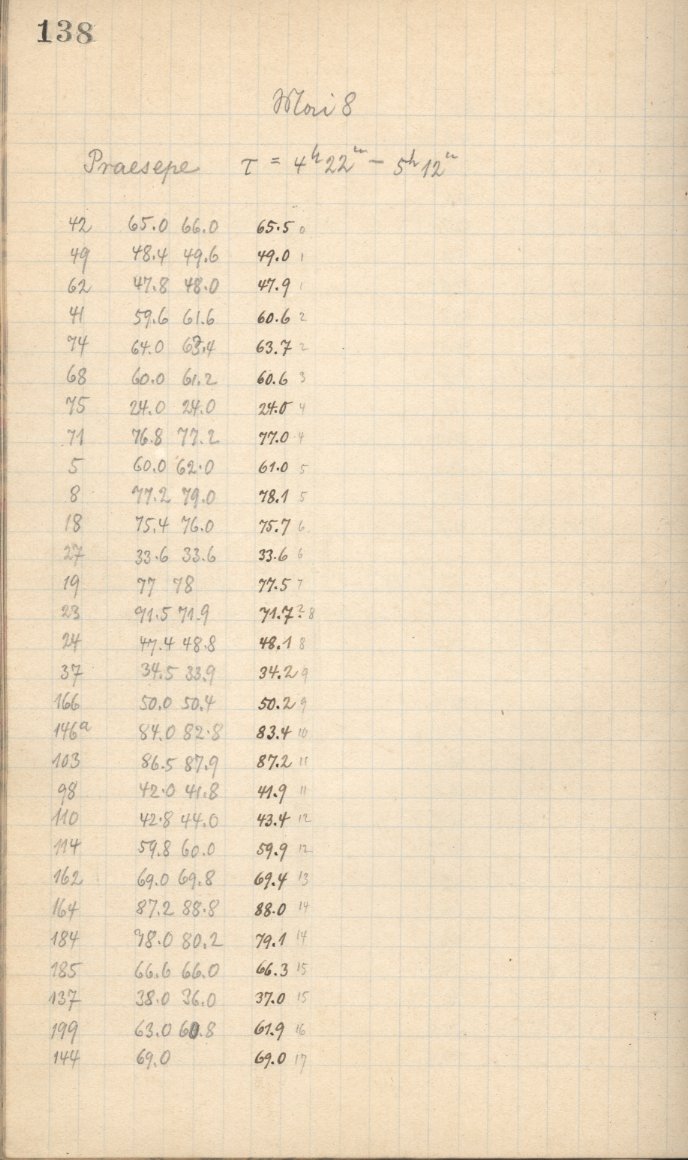 138
Mai 8
Praesepe τ = 4h22m – 5h12m
42 65.0 66.0 65.5 0
49 48.4 49.6 49.0 1
62 47.8 48.0 47.9 1
41 59.6 61.6 60.6 2
74 64.0 63.4 63.7 2
68 60.0 61.2 60.6 3
75 24.0 24.0 24.0 4
71 76.8 77.2 77.0 4
5 60.0 62.0 61.0 5
8 77.2 79.0 78.1 5
18 75.4 76.0 75.7 6
27 33.6 33.6 33.6 6
19 77 78 77.5 7
23 71.5 71.9 71.7 ? 8
24 47.4 48.8 48.1 8
37 34.5 33.9 34.2 9
166 50.0 50.4 50.2 9
146a 84.0 82.8 83.4 10
103 86.5 87.9 87.2 11
98 42.0 41.8 41.9 11
110 42.8 44.0 43.4 12
114 59.8 60.0 59.9 12
162 69.0 69.8 69.4 13
164 87.2 88.8 88.0 14
184 78.0 80.2 79.1 14
185 66.6 66.0 66.3 15
137 38.0 36.0 37.0 15
199 63.0 60.8 61.9 16
144 69.0 69.0 17